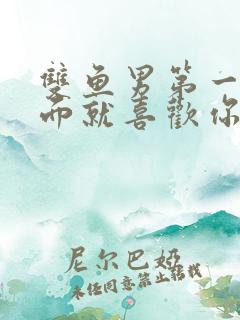 雙鱼男第一
而就喜歡你
尼尔巴娅
未经同意禁止转载